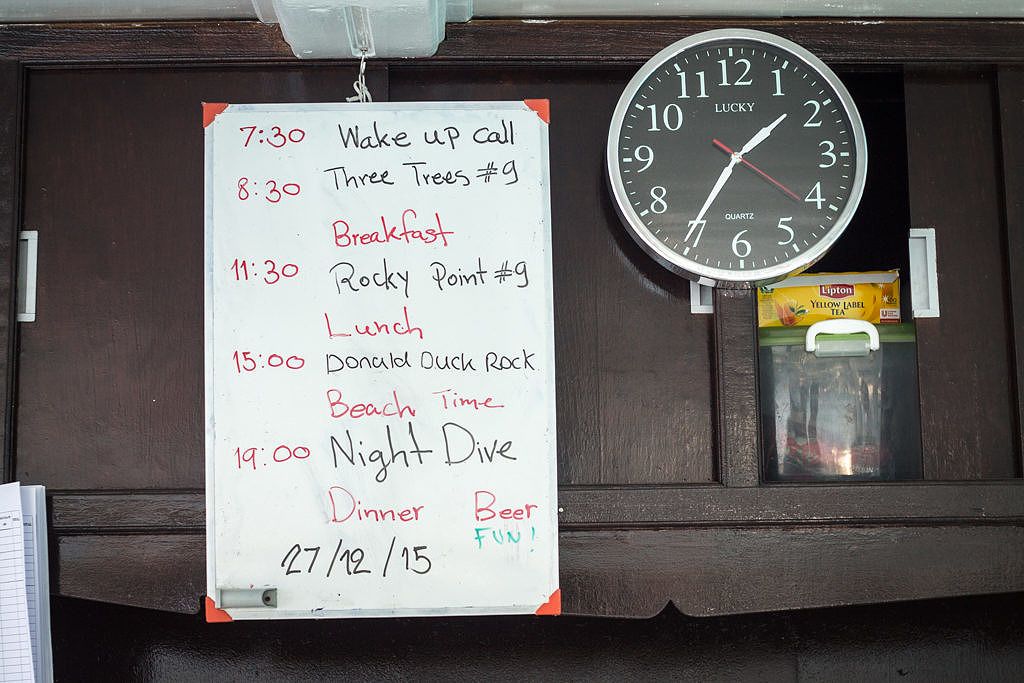 7:30 Wake up call
8:30 Three Trees #9
Breakfast
11:30 Rocky Point #9
Lunch
15:00 Donald Duck Rock
Beach Time
19:00 Night Dive
Dinner Beer
FUN!
27/12/15
12
1
2
3
4
5
6
7
8
9
10
11
LUCKY
QUARTZ
Lipton
YELLOW LABEL
TEA